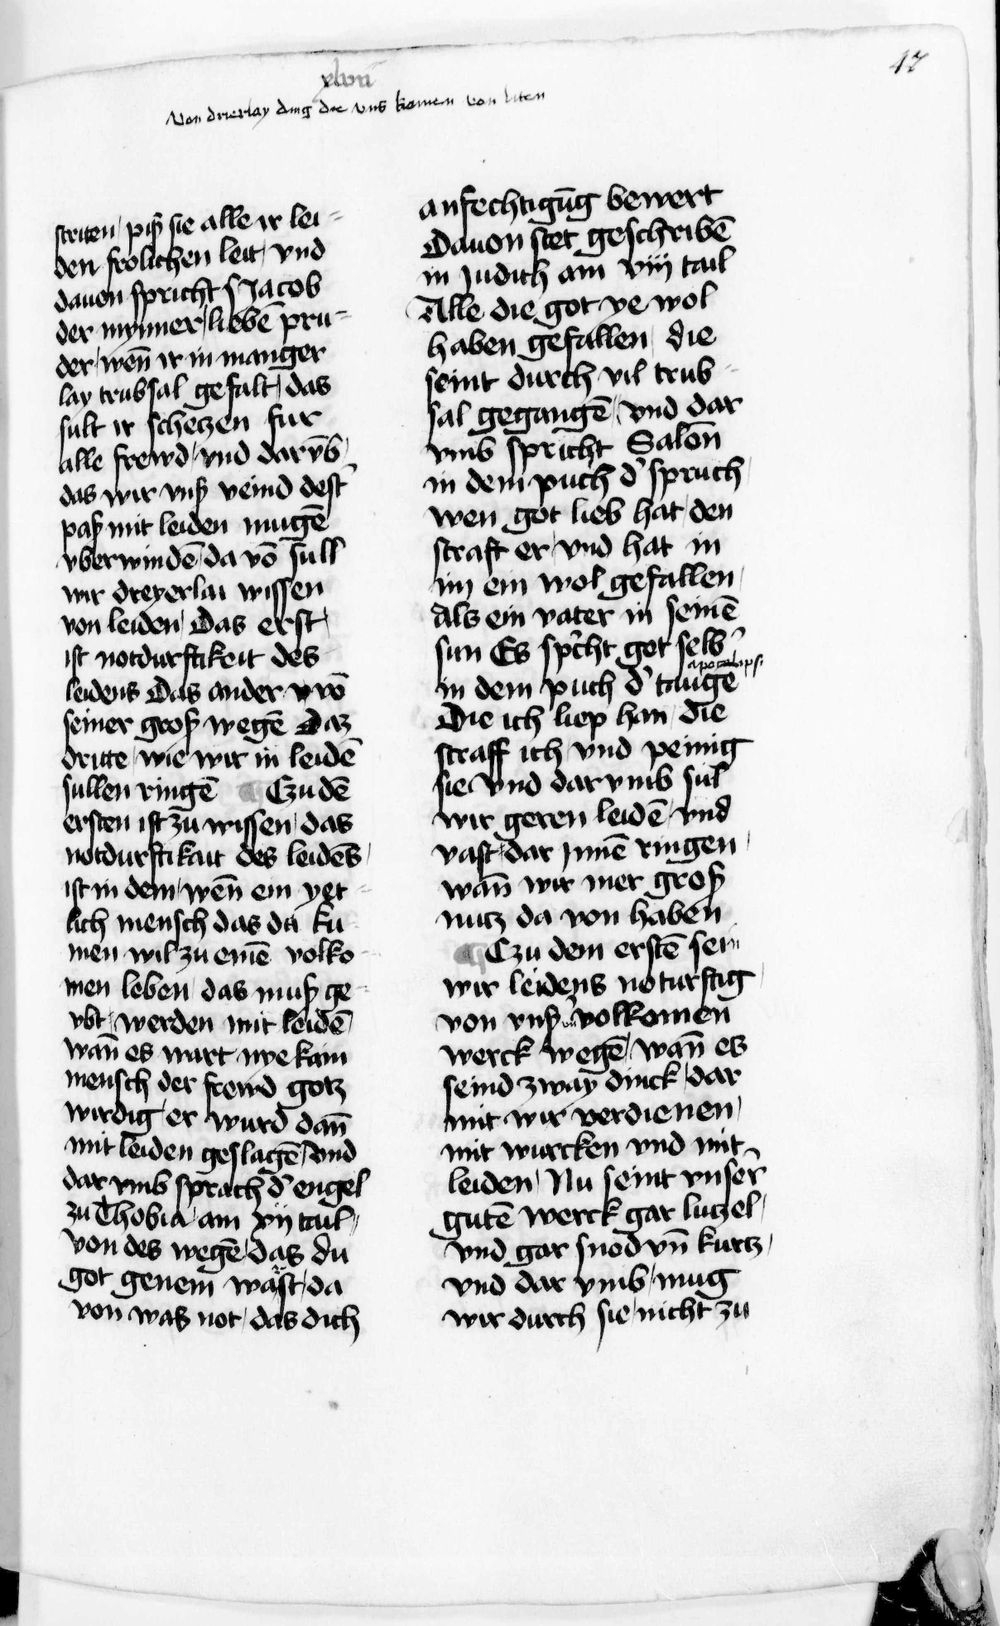 47
xlvii
Von drierlay ding die vns komen von liten
striten / piß sie alle ir lei-
den frolichen leit / vnd
dauon spricht s Jacob
der mynner / liebē prü-
der / weñ ir in manger
lay trubsal gefalt / das
sult ir schetzen fur
alle frewd / vnd darvb̄
das wir vnß veind dest'
paß mit leiden mugē
vberwindē / da vō sull
wir dreyerlai wissen
von leiden / Das erst /
ist notdurftikeit des
leidens Das ander vrō
seiner groß wegē Daz
dritte / wie wir in leidē
sullen ringē Czu dē
ersten ist zu wissen / das
notdurftikait des leidēs /
ist in dem / weñ ein yet-
lich mensch das da ku-
men wil zu einē volko-
men leben / das muß ge-
vbt / werden mit leidē /
wañ es wart nye kain
mensch der frewd gotz
wirdig / er wurd dañ
mit leiden geslagē / vnd
dar vmb sprach d' engel
zu Thobia / am xij tail /
von des wegē / das du
got genem wast / da
von was not / das dich
anfechtigūg bewert
Dauon stet geschribē
in Judith am viij tail
Alle die got ye wol
haben gefallen / die
seint durch vil trub-
sal gegangē / vnd dar
vmb spricht Salōn
in dem puch d' spruch /
wen got lieb hat / den
straft er / vnd hat in
im ein wol gefallen /
Als ein vater in seinē
sun Es sp'cht got selb'
apocalips.
in dem puch d' taugē
Die ich liep han / die
straff ich / vnd peinig
sie vnd dar vmb sul
wir geren leidē / vnd
vast / dar Jnnē ringen /
wañ wir mer groß
nutz da von haben
Czu dem erstē sein
wir leidens noturftig /
von vnß' volkomen
werck wegē / wañ es
seind zway dinck / dar
mit wir verdienen /
mit wurcken vnd mit
leiden / Nu seint vnser'
gutē werck gar lutzel /
vnd gar snod vñ kurtz /
vnd dar vmb / mug
wir durch sie / nicht zu